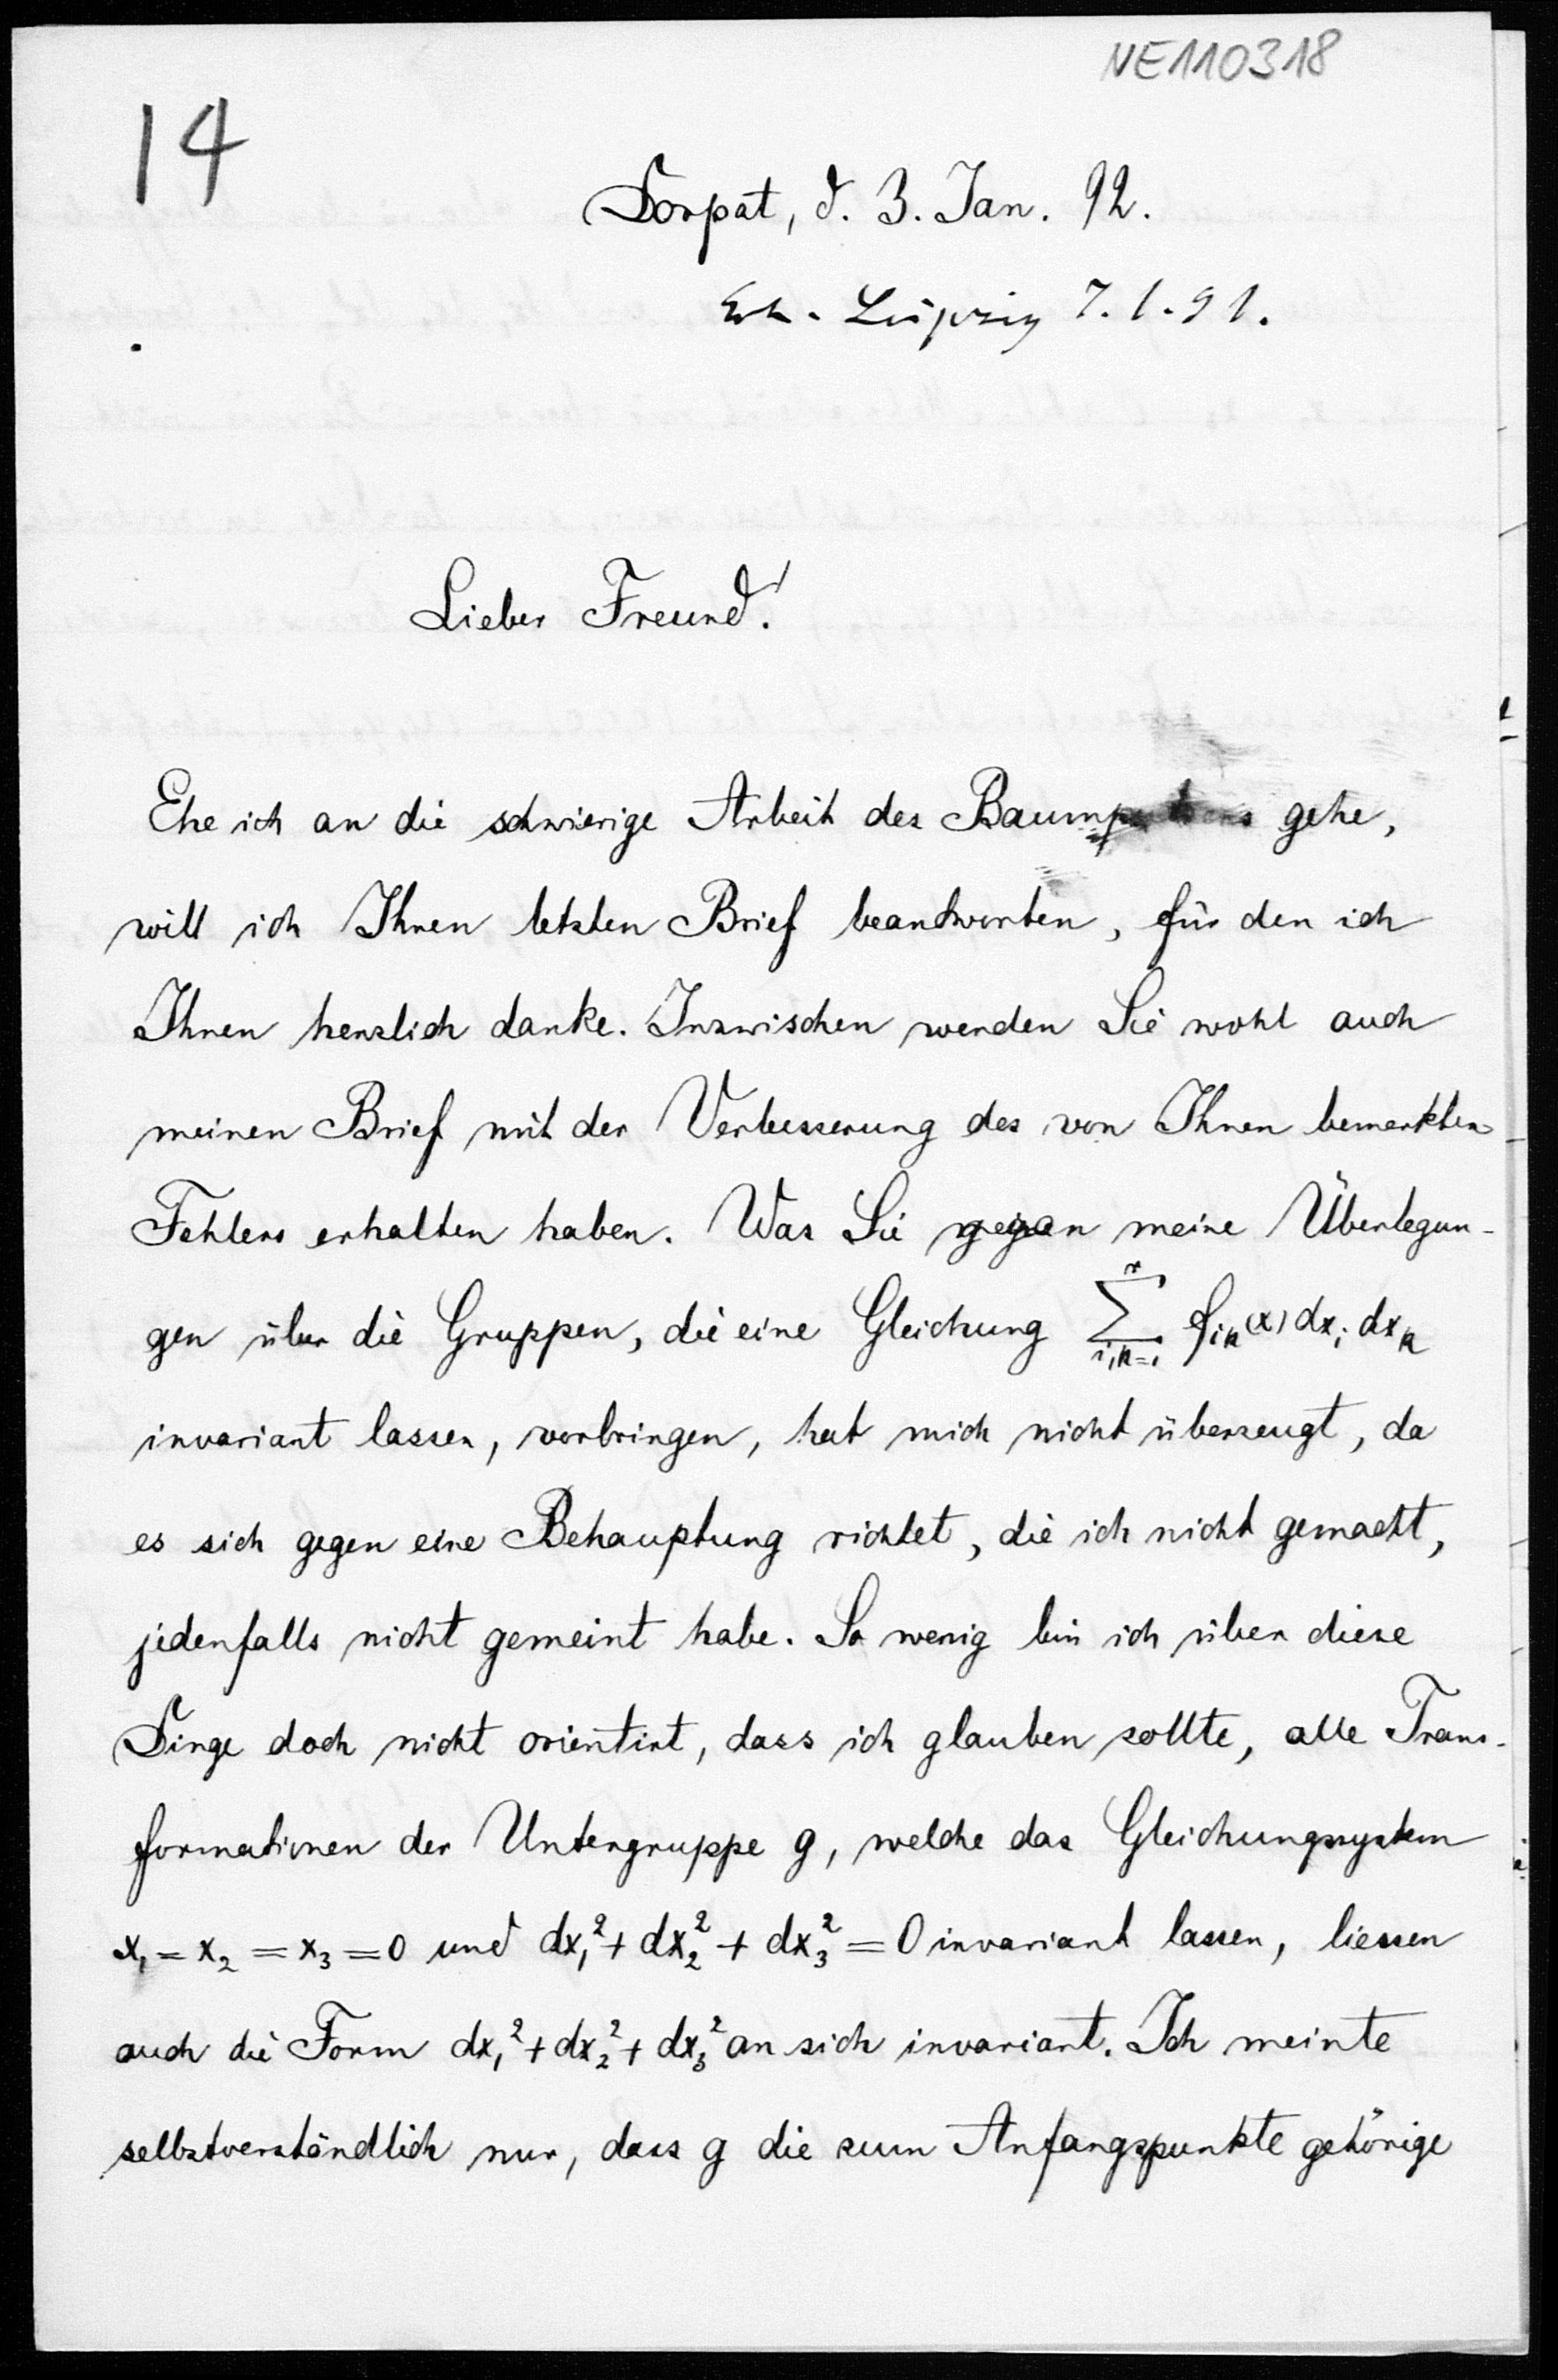 NE110318
14
Dorpat, d. 3. Jan. 92.
Erh. Leipzig 7.1.91.
Lieber Freund!
Ehe ich an die schwierige Arbeit des gehe,
will ich Ihren letzten Brief beantworten, für den ich
Ihnen herzlich danke. Inzwischen werden Sie wohl auch
meinen Brief mit der Verbesserung des von Ihnen bemerkten
Fehlers erhalten haben. Was Sie gegen meine Überlegun-
gen über die Gruppen, die eine Gleichung $\sum_{i,k=1}^{n} f_{ik}(x) dx_i dx_k$
invariant lassen, vorbringen, hat mich nicht überzeugt, da
es sich gegen eine Behauptung richtet, die ich nicht gemacht,
jedenfalls nicht gemeint habe. So wenig bin ich über diese
Dinge doch nicht orientirt, dass ich glauben sollte, alle Trans-
formationen der Untergruppe g, welche das Gleichungssystem
$x_1 = x_2 = x_3 = 0$ und $dx_1^2 + dx_2^2 + dx_3^2 = 0$ invariant lassen, liessen
auch die Form $dx_1^2 + dx_2^2 + dx_3^2$ an sich invariant. Ich meinte
selbstverständlich nur, dass g die zum Anfangspunkte gehörige